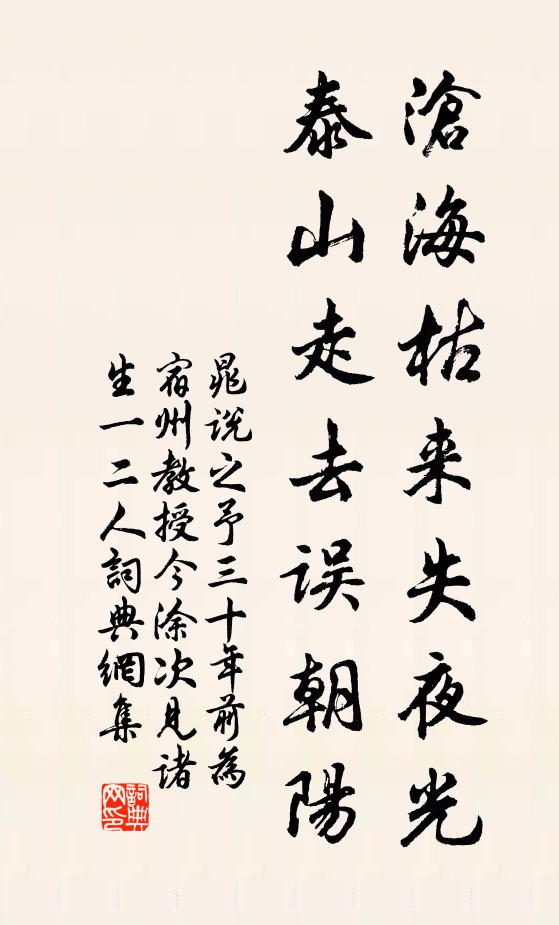 滄海枯来失夜光
泰山走去误朝陽
晁说之予三十年前為
宿州教授今涂次見诸
生一二人詞典網集
詞典网印